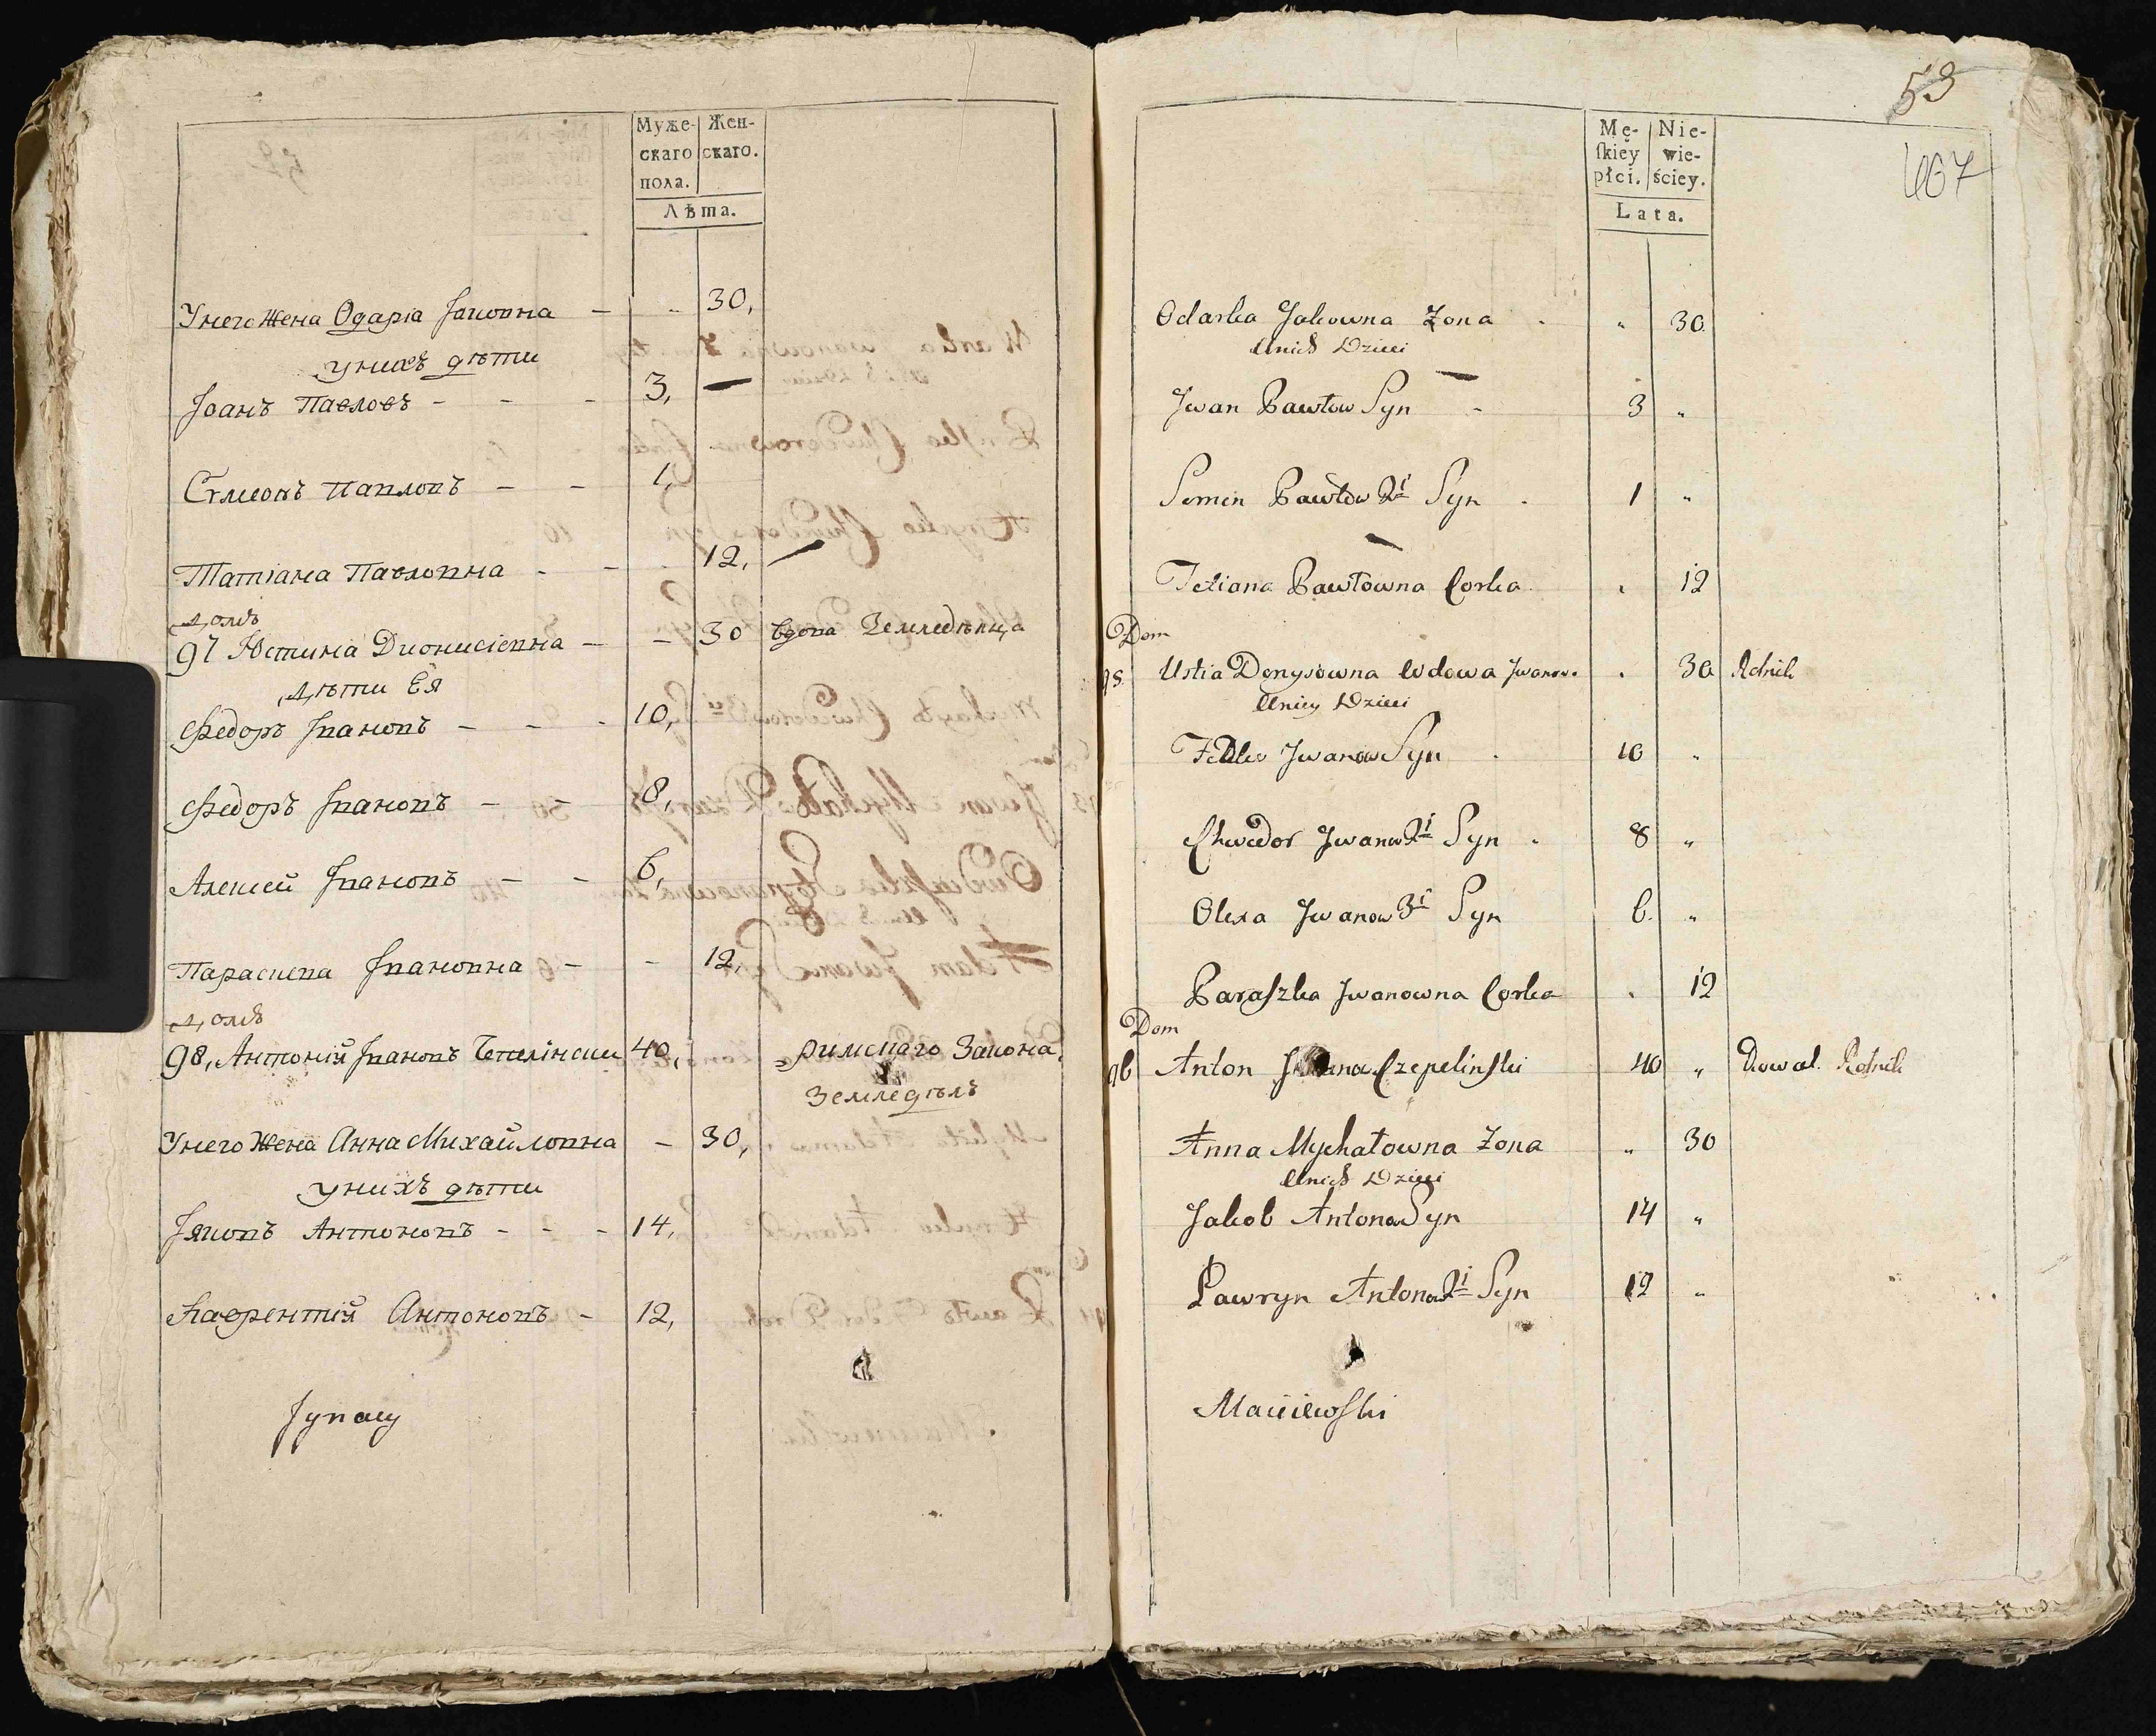 Муже-
скаго
пола.
Жен-
скаго.
Лѣта.
Унего Жена Одаріа Іаковна - 30,
унихъ дѣти
Іоанъ Павловъ - - - 3, —
Симеонъ Павловъ - - 1,
Татіана Павловна - - 12, —
Домъ
97 Юстина Дионисіевна - - 30 вдова Земледѣлица
Дѣти Ея
Федоръ Івановъ - - - 10,
Федоръ Івановъ - - 8,
Алексей Івановъ - - 6,
Параскева Івановна - - 12,
Домъ
98, Антоній Івановъ Чепелінски 40, римскаго Закона,
Земледѣлъ
Унего Жена Анна Михайловна - 30,
унихъ дѣти
Іаковъ Антоновъ - - - 14,
Лаврентій Антоновъ - 12,
Jgnacy
53
407
Mę-
ſkiey
płci.
Nie-
wie-
ściey.
Lata.
Odarka Jakowna Zona „ 30
Unich Dzieci
Jwan Pawłow Syn 3 „
Semen Pawłow 2i Syn 1 „
Tetiana Pawłowna Corka 12
Dom
95 Ustia Denysowna Wdowa Jwanow. 30 Rolnik
Uniey Dzieci
Fedko Jwanow Syn 10 „
Chwedor Jwanow 2i Syn 8 „
Olexa Jwanow 3i Syn 6. „
Paraſzka Jwanowna Corka 12
Dom
96 Anton Czepelinſki 40 „ Kowal. Rolnik
Anna Mychałowna Zona „ 30
Unich Dzieci
Jakob Antonow Syn 14 „
Ławryn Antonow 2i Syn 12 „
Maciiewſki